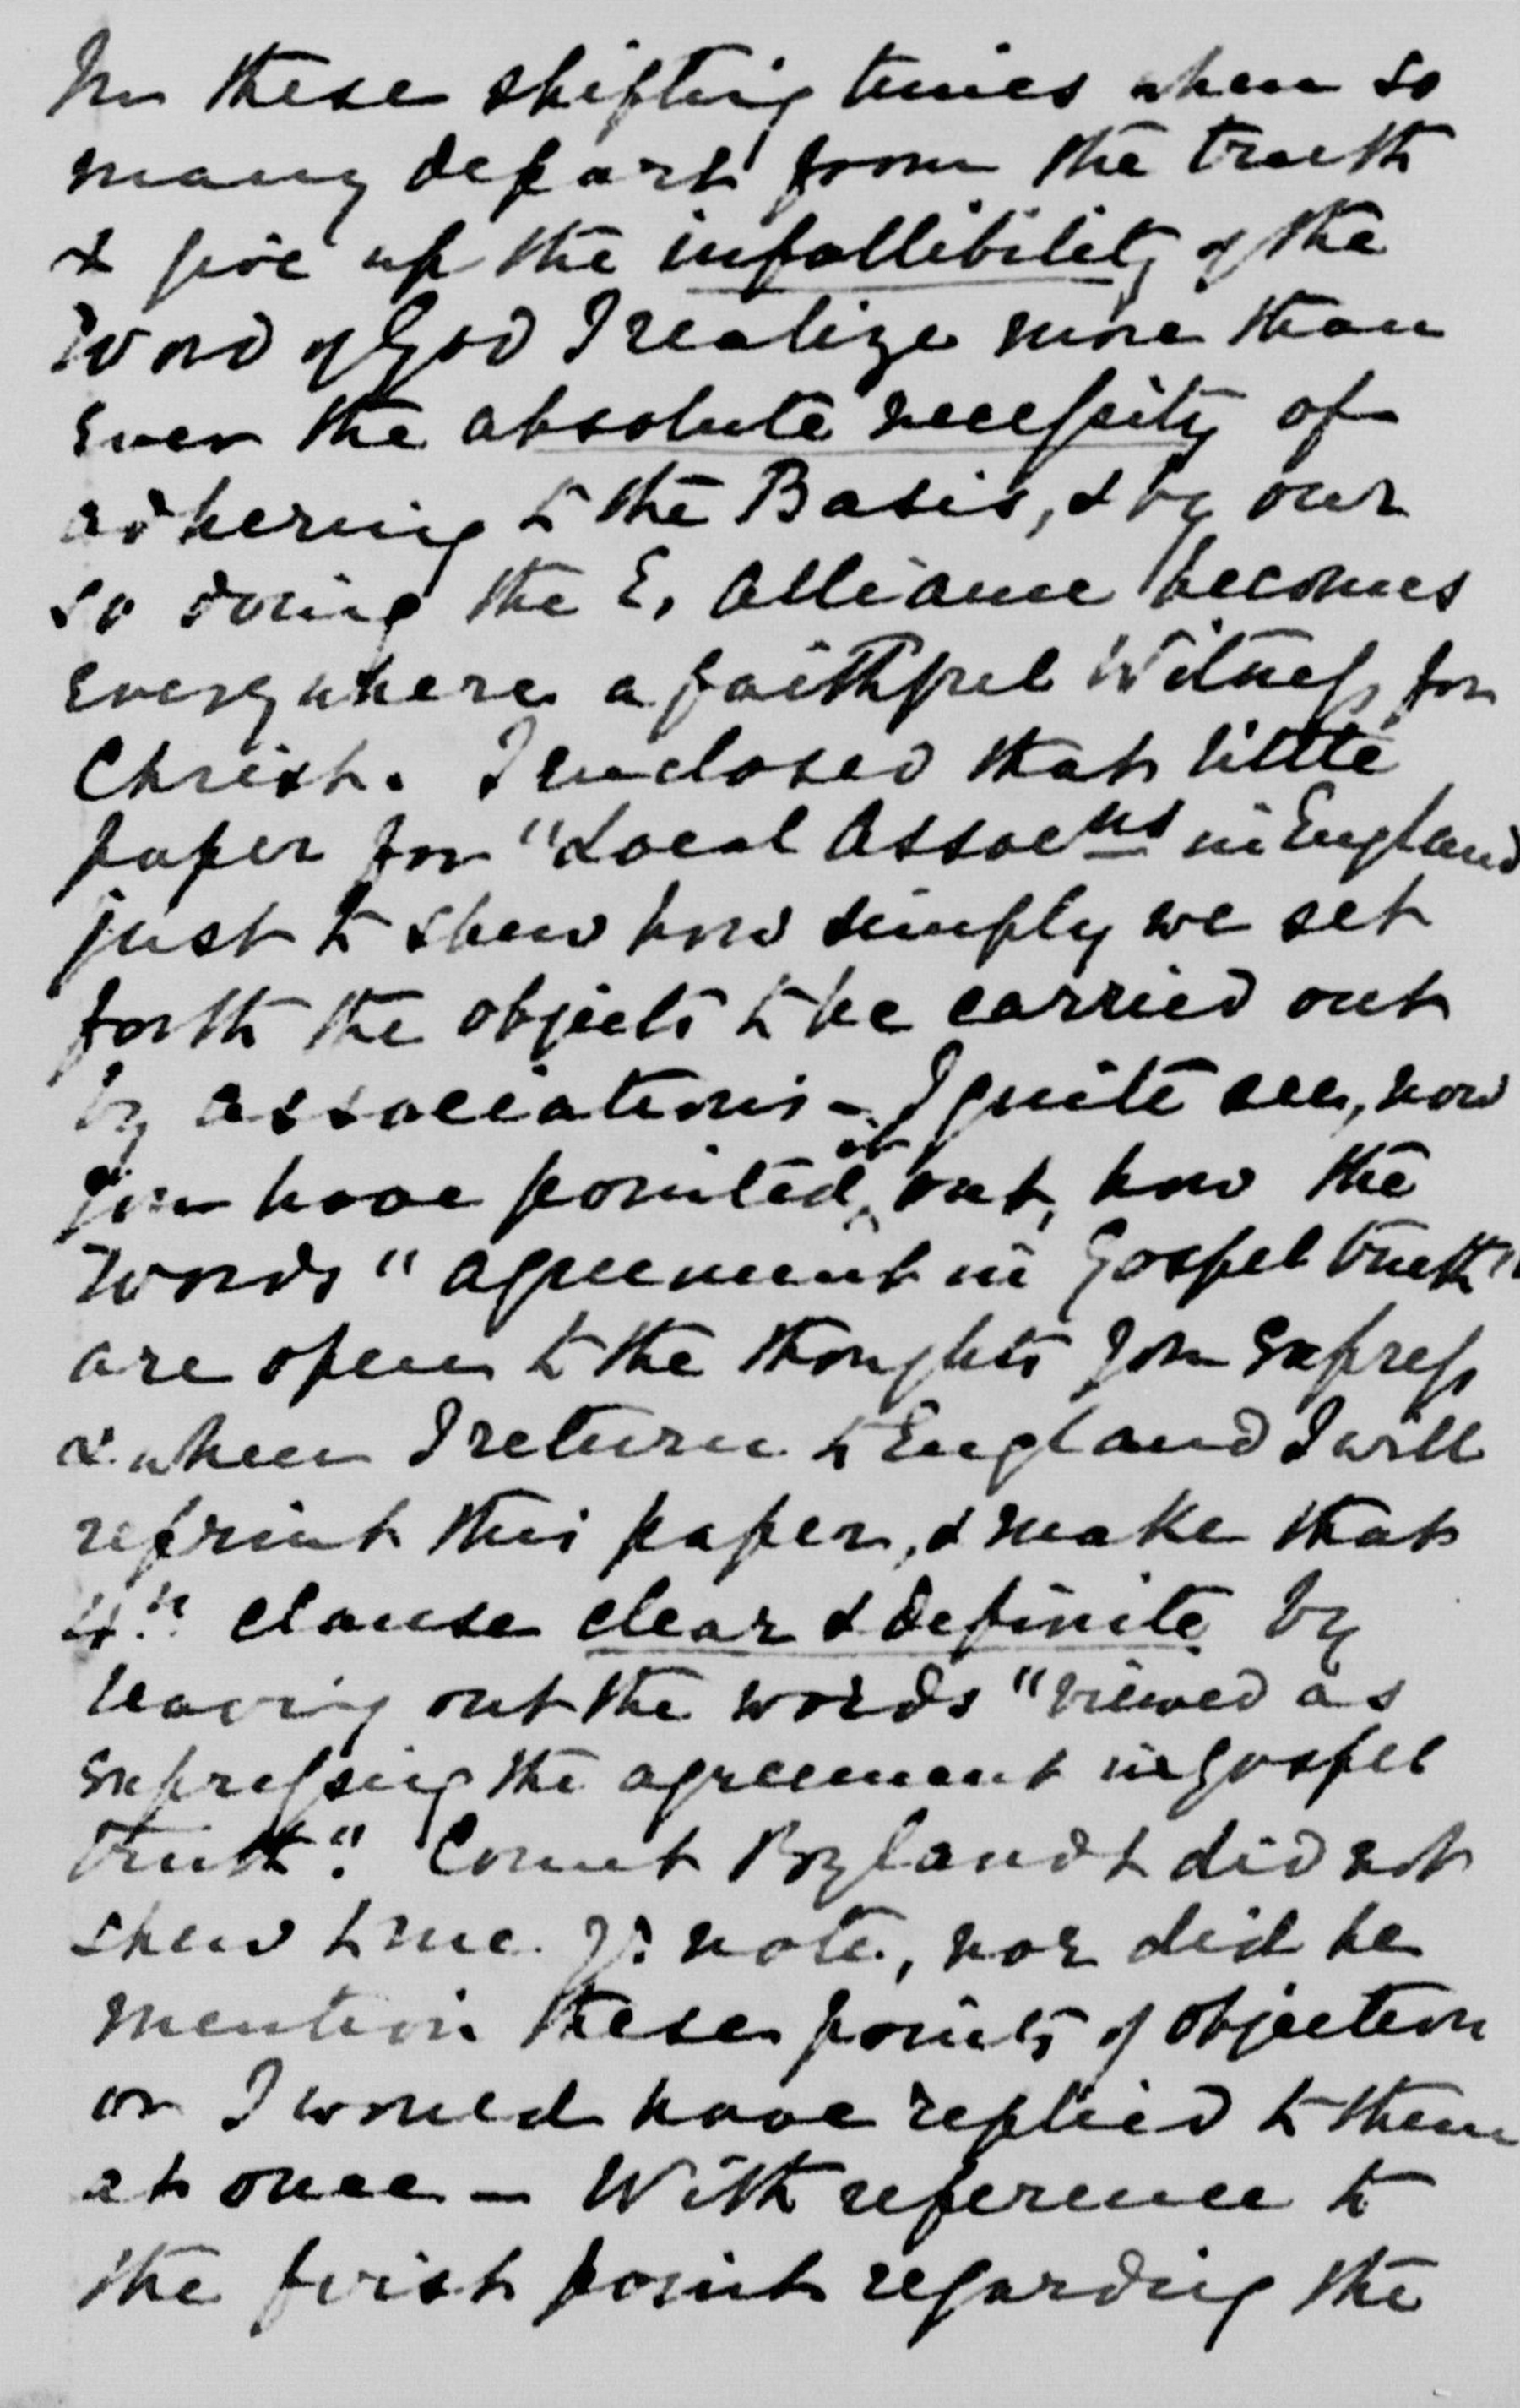 In these shifting times when so
many depart from the truth
& give up the infallibility of the
Word of God I realize more than
ever the absolute necessity of
adhering to the Basis, & by our
so doing the E. Alliance becomes
everywhere a faithful Witness for
Christ. I enclosed that little
paper for "Local Assocns in England
just to shew how simply we set
forth the objects to be carried out
by associations - I quite see, now
you have pointed it out, how the
words "agreement in Gospel truth"
are open to the thoughts you express
& when I return to England I will
reprint this paper, & make that
4th clause clear & definite by
leaving out the words "viewed as
expressing the agreement in Gospel
truth". Count Bylandt did not
shew to me yr note, nor did he
mention these points of objection
or I would have replied to them
at once - With reference to
the first point regarding the